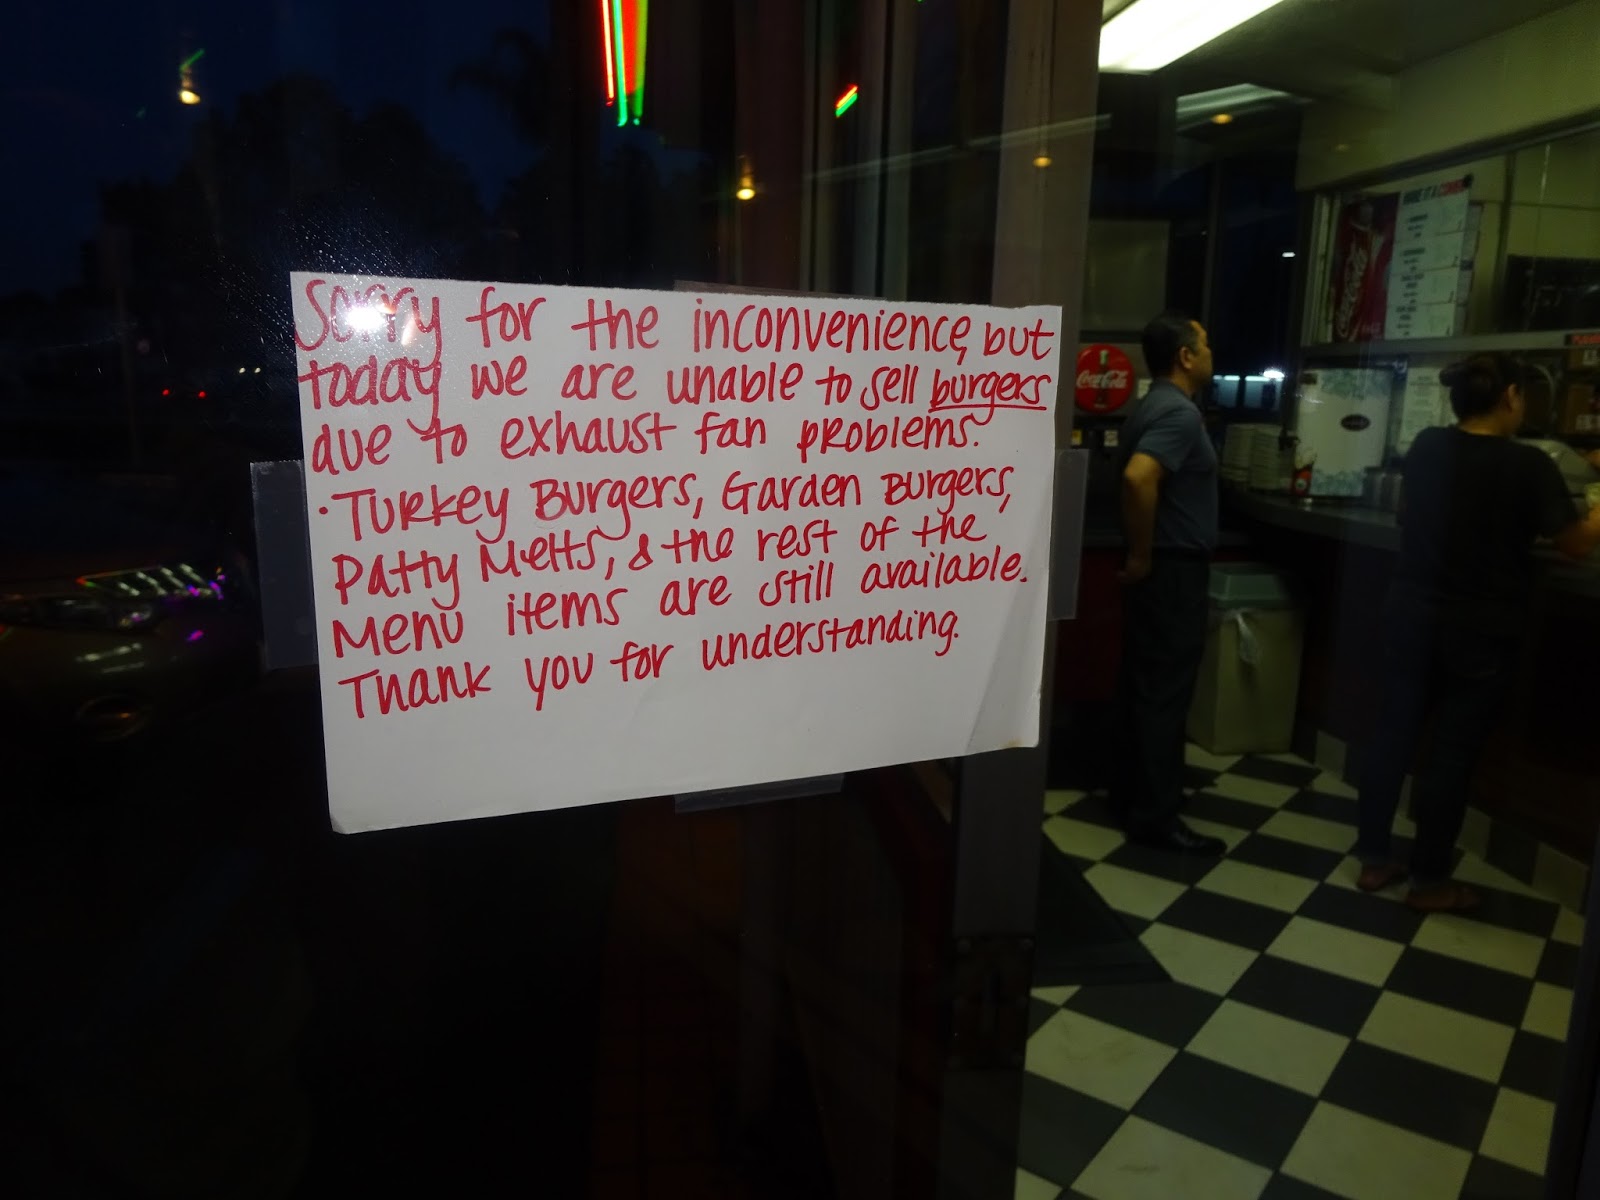 Sorry for the inconvenience, but
today we are unable to sell burgers
due to exhaust fan problems.
· Turkey Burgers, Garden Burgers,
Patty Melts, & the rest of the
Menu items are still available.
Thank you for understanding.
MAKE IT A COMBO
Coca-Cola
Coca-Cola